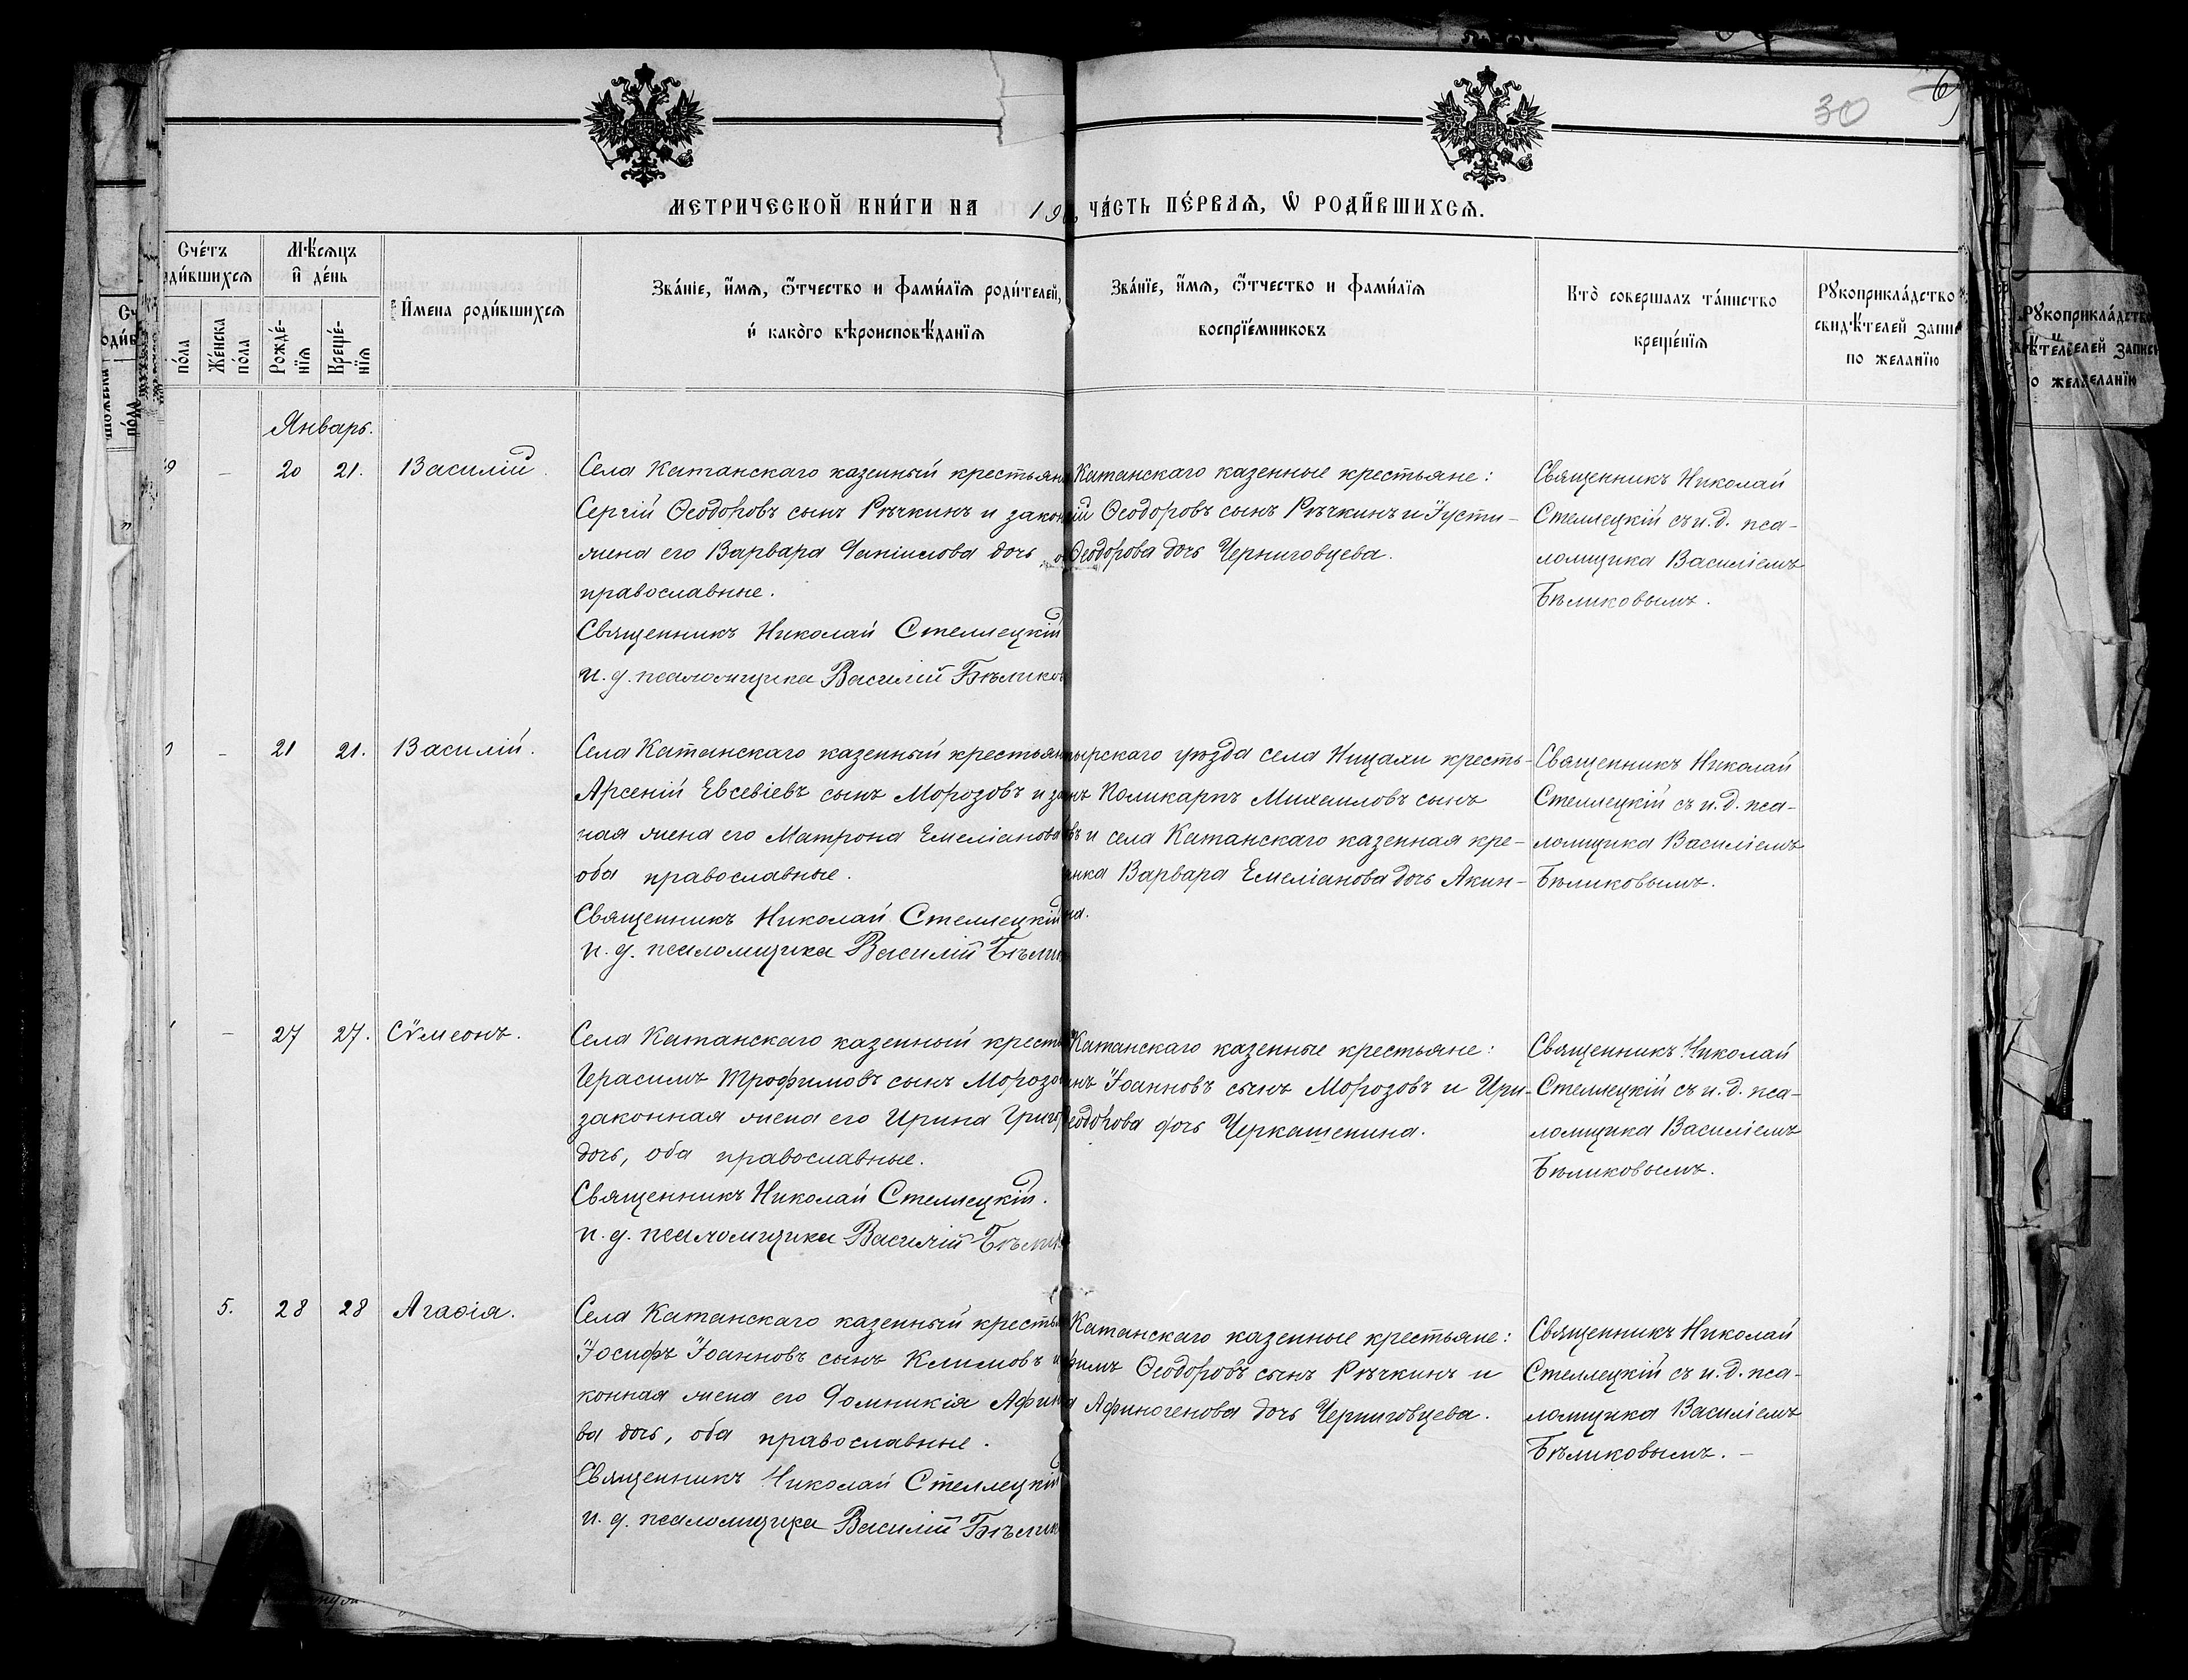 30
МЕТРИЧЕСКОЙ КНИ́ГИ НА 19 ЧА́СТЬ ПЕ́РВАѦ, Ѡ РОДИ́ВШИХСѦ.
Сче́тъ
Мѣ́сѧцъ
и де́нь
Имена роди́вшихсѧ
Зва́нїе, и́мѧ, ѻ́тчество и фами́лїѧ роди́телей,
и како́го вѣроисповѣ́данїѧ
Зва́нїе, и́мѧ, ѻ́тчество и фами́лїѧ
воспрїе́мниковъ
Кто̀ совершалъ та́инство
креще́нїѧ
Рꙋкоприкла́дство
свидѣ́телей
по желанїю
по́ла
Же́нска
по́ла
Рожде́-
нїѧ
Креще́-
нїѧ
Январь.
9 – 20 21. Василій.
Села Катанскаго казенный крестьян
Сергій Ѳеодоровъ сынъ Рѣчкинъ и закон
жена его Варвара дочь
православные.
Священникъ Николай Стеллецкій
и. д. псаломщика Василій Бѣликов
Катанскаго казенные крестьяне:
ій Ѳеодоровъ сынъ Рѣчкинъ и Іусти-
Ѳеодорова дочь Черниговцева.
Священникъ Николай
Стеллецкій съ и. д. пса-
ломщика Василіемъ
Бѣликовымъ.
– 21 21. Василій.
Села Катанскаго казенный крестьян
Арсеній Евсевіевъ сынъ Морозовъ и за
ная жена его Матрона Емеліанова
оба православные.
Священникъ Николай Стеллецкій
и. д. псаломщика Василій Бѣли
ырскаго уѣзда села Ницахи кресть-
нъ Поликарпъ Михаиловъ сынъ
въ и села Катанскаго казенная кре-
нка Варвара Емеліанова дочь Акин-
на.
Священникъ Николай
Стеллецкій съ и. д. пса-
ломщика Василіемъ
Бѣликовымъ.
– 27 27. Сѷмеонъ.
Села Катанскаго казенный кресть
Герасимъ Трофимовъ сынъ Морозо
законная жена его Ирина Григор
дочь, оба православные.
Священникъ Николай Стеллецкій.
и. д. псаломщика Василій Бѣли
Катанскаго казенные крестьяне:
нъ Іоанновъ сынъ Морозовъ и Ири-
еодорова дочь Черкашенина.
Священникъ Николай
Стеллецкій съ и. д. пса-
ломщика Василіемъ
Бѣликовымъ.
5. 28 28 Агаѳія.
Села Катанскаго казенный кресть
Іосифъ Іоанновъ сынъ Климовъ и
конная жена его Домникія Афин
ва дочь, оба православные.
Священникъ Николай Стеллецкій
и. д. псаломщика Василій Бѣли
Катанскаго казенные крестьяне:
фимъ Ѳеодоровъ сынъ Рѣчкинъ и
а Афиногенова дочь Черниговцева.
Священникъ Николай
Стеллецкій съ и. д. пса-
ломщика Василіемъ
Бѣликовымъ. –